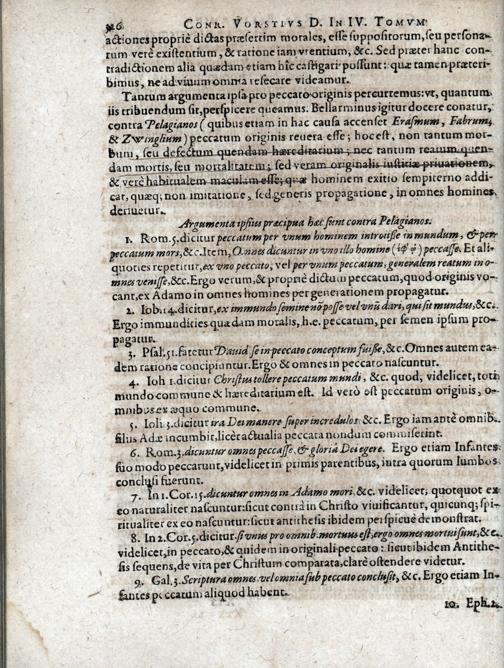 326. CONR. VORSTIVS D. IN IV. TOMVM
actiones propriè dictas præsertim morales, esse suppositorum, seu persona-
rum verè existentium, & ratione iam vtentium, &c. Sed præter hanc con-
tradictionem alia quædam etiam hîc castigari possunt: quæ tamen præteri-
bimus, ne ad viuum omnia resecare videamur.
Tantum argumenta ipsa pro peccato originis percurremus: vt, quantum
iis tribuendum sit, perspicere queamus. Bellarminus igitur docere conatur,
contra Pelagianos (quibus etiam in hac causa accenset Erasmum, Fabrum,
& Zwinglium) peccatum originis reuera esse; hoc est, non tantum mor-
bum, seu defectum quendam hæreditarium; nec tantum reatum quen-
dam mortis, seu mortalitatem; sed veram originalis iustitiæ priuationem,
& verè habitualem maculam esse; quæ hominem exitio sempiterno addi-
cat, quæq; non imitatione, sed generis propagatione, in omnes homines
deriuetur.
Argumenta ipsius præcipua hæc sient contra Pelagianos.
1. Rom. 5. dicitur peccatum per vnum hominem introiisse in mundum, & per
peccatum mors, &c. Item, Omnes dicuntur in vno illo homine (ἐφ᾽ ᾧ) peccasse. Et ali-
quoties repetitur, ex vno peccato, vel per vnum peccatum, generalem reatum in o-
mnes venisse, &c. Ergo verum, & propriè dictum peccatum, quod originis vo-
cant, ex Adamo in omnes homines per generationem propagatur.
2. Iob. 14. dicitur, ex immundo semine nō posse vel vnū dari, qui sit mundus, &c.
Ergo immundicies quædam moralis, h.e. peccatum, per semen ipsum pro-
pagatur.
3. Psal. 51. fatetur Dauid se in peccato conceptum fuisse, &c. Omnes autem ea-
dem ratione concipiuntur. Ergo & omnes in peccato nascuntur.
4. Ioh. 1. dicitur Christus tollere peccatum mundi, &c. quod, videlicet, toti
mundo commune & hæreditarium est. Id verò est peccatum originis, o-
mnibus ex æquo commune.
5. Ioh. 3. dicitur ira Dei manere super incredulos &c. Ergo iam antè omnib.
filiis Adæ incumbit, licèt actualia peccata nondum commiserint.
6. Rom. 3. dicuntur omnes peccasse, & gloriâ Dei egere. Ergo etiam Infantes
suo modo peccarunt, videlicet in primis parentibus, intra quorum lumbos
conclusi fuerunt.
7. In 1. Cor. 15. dicuntur omnes in Adamo mori, &c. videlicet, quotquot ex
eo naturaliter nascuntur: sicut contrà in Christo viuificantur, quicunq; spi-
ritualiter ex eo nascuntur: sicut antithesis ibidem perspicuè demonstrat.
8. In 2. Cor. 5. dicitur, si vnus pro omnib. mortuus est, ergo omnes mortui sunt, &c.
videlicet, in peccato, & quidem in originali peccato: sicut ibidem Antithe-
sis sequens, de vita per Christum comparata, clarè ostendere videtur.
9. Gal. 3. Scriptura omnes vel omnia sub peccato conclusit, &c. Ergo etiam In-
fantes peccatum aliquod habent.
10. Eph. 2.